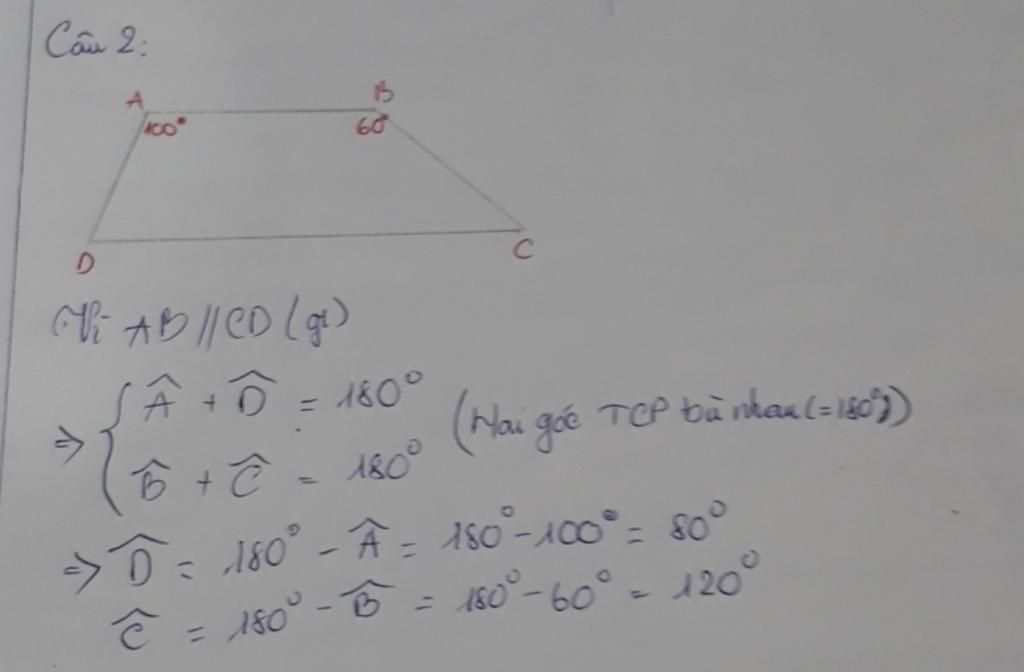 Câu 2:
A B
100° 60°
D C
Vì AB//CD (gt)
⇒ { Â + D̂ = 180°
B̂ + Ĉ = 180° (Hai góc TCP bù nhau (=180°))
⇒ D̂ = 180° - Â = 180° - 100° = 80°
Ĉ = 180° - B̂ = 180° - 60° = 120°